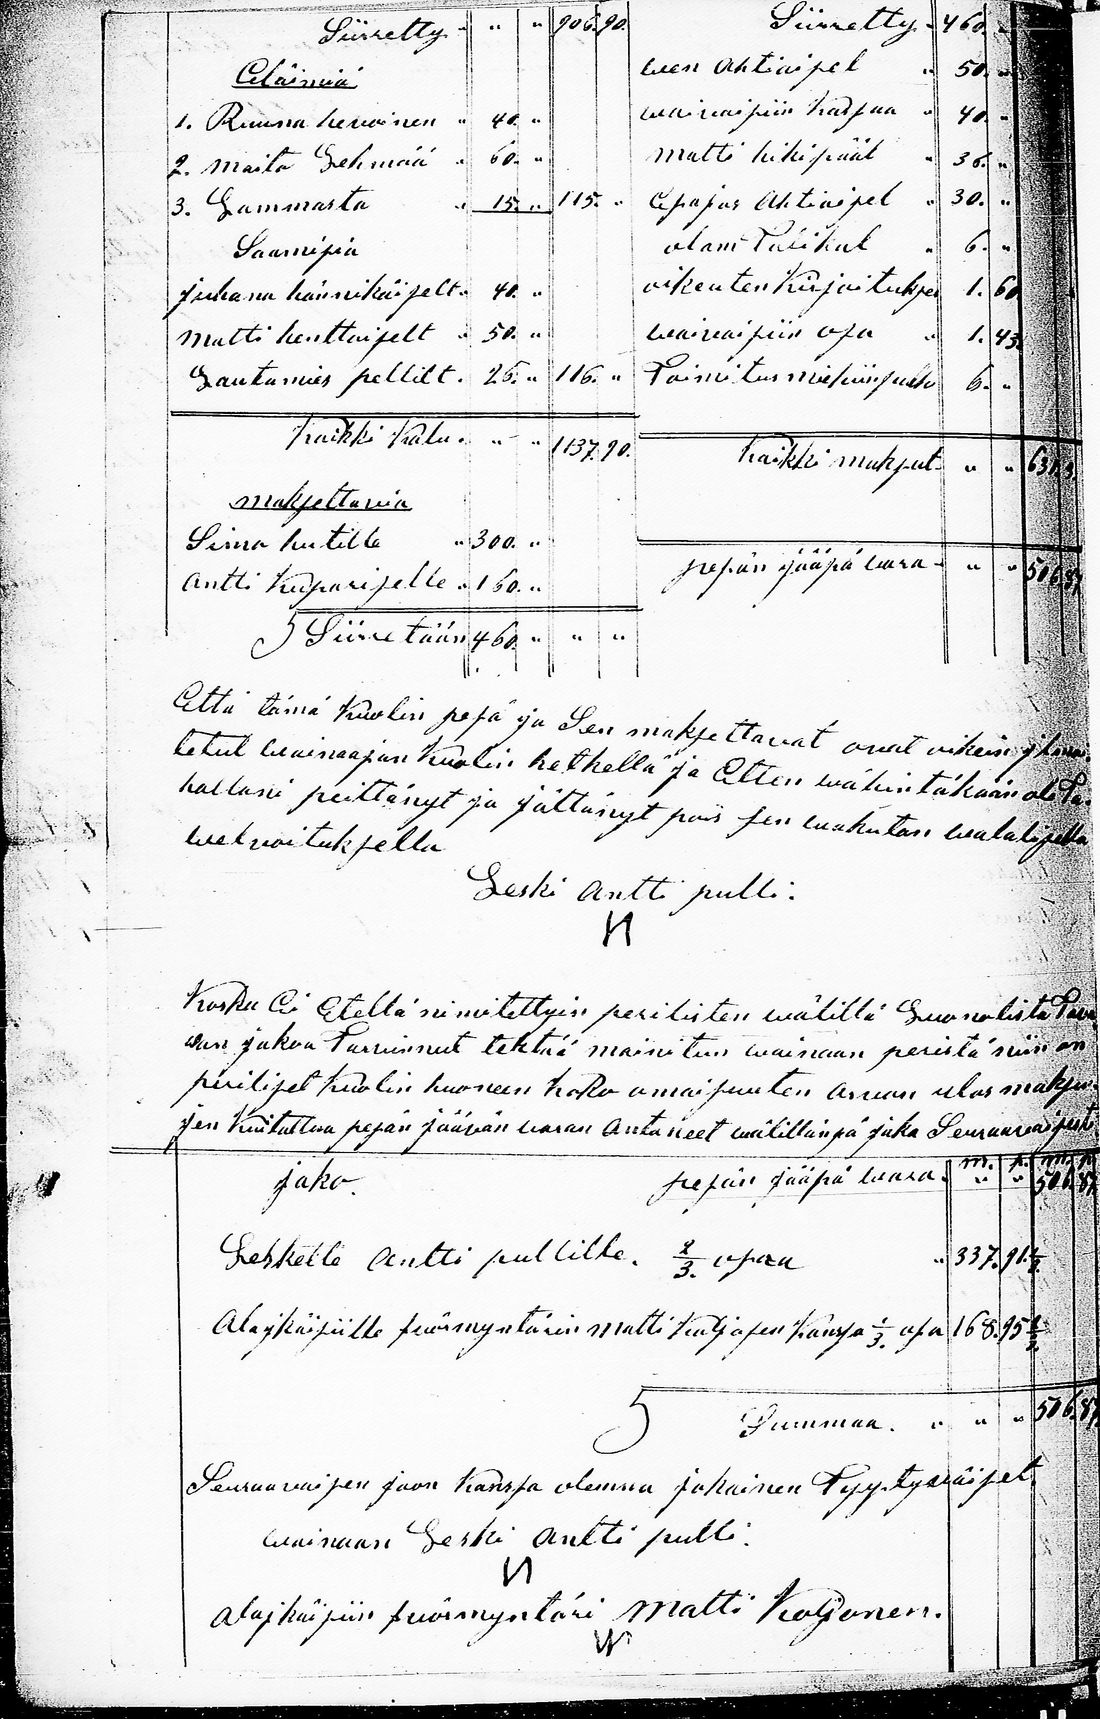 Siirretty " " 906. 90.
Eläimiä
1. Ruuna hevoinen " 40. "
2. maito Lehmää " 60. "
3. Lammasta " 15. " 115. "
Saamisia
juhana hännikäiselt. 40. "
matti henttaiselt " 50. "
Lautamies pellilt. 26. " 116. "
Kaikki Kalu. " " 1137. 90.
maksettavia
Simo hutille " 300. "
antti Kupariselle " 160. "
Siirretään 460. " " "
Siirretty " 460. "
wen Ahtiaiset " 50. "
waivaisiin kassaa " 40. "
matti kikipäät " 36. "
Epajas Ahtiaiset " 30. "
olani Täsikul " 6. "
oikeuten Kirjoitukset 1. 60
waivaisiin osa " 1. 43.
Toimitus miehiin palk 6. "
Kaikki maksut " " 631. 3.
sepän jääpä wara " " 506. 87
Että tämä Kuolin pesä ja Sen maksettavat ovat oikein ylimoi
tetut wainaajan Kuolin hetkellä ja Etten wähintäkään ole ta
hallani peittänyt ja jättänyt pois sen wakutan walalisella
welvoituksella
Leski antti pulli.
Koska Ei Etellä nimitettyin perilisten wälillä Luonolista Tava
wan jakoa Tarvinnut tehtää mainitun wainaan peristä niin on
perilijet Kuolin huoneen koko omaisuuten arvan ulos maksu
jen Kuitattua pesän jäävän waran Antaneet wälillänsä jaka Seuraavaisesti
jako. pesän jääpä wara. m. p. m. p.
" " 506. 87
Leskelle Antti pullille. 2/3. osaa " 337. 91 1/3
Alaikäisille förmyntärin matti Koljosen Kanssa 1/3. osa 168. 95 2/3
Summaa. " " " 506. 87
Seuraavaisen jaon Kanssa olemma jokainen Tyytyväiset
wainaan Leski antti pulli.
alaikäisiin förmyntäri matti Koljonen.